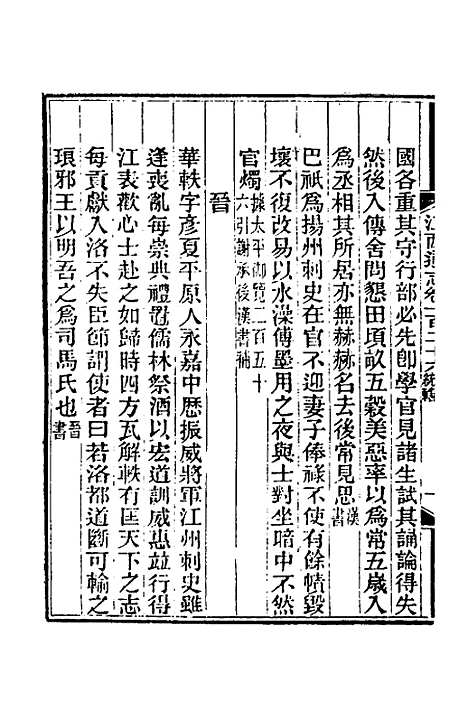 國各重其守行部必先卽學官見諸生試其誦論得失
然後入傳舍問懇田頃畝五穀美惡率以爲常五歲入
爲丞相其所居亦無赫赫名去後常見思漢書
巴祇爲揚州刺史在官不迎妻子俸祿不使有餘幘毀
壞不復改易以水澡傅墨用之夜與士對坐暗中不然
官燭據太平御覽二百五十六引謝承後漢書補
晉
華軼字彥夏平原人永嘉中歷振威將軍江州刺史雖
逢喪亂每崇典禮置儒林祭酒以宏道訓威惠並行得
江表歡心士赴之如歸時四方瓦解軼有匡天下之志
每貢獻入洛不失臣節謂使者曰若洛都道斷可輸之
琅邪王以明吾之爲司馬氏也晉書
江西通志卷一百二十六